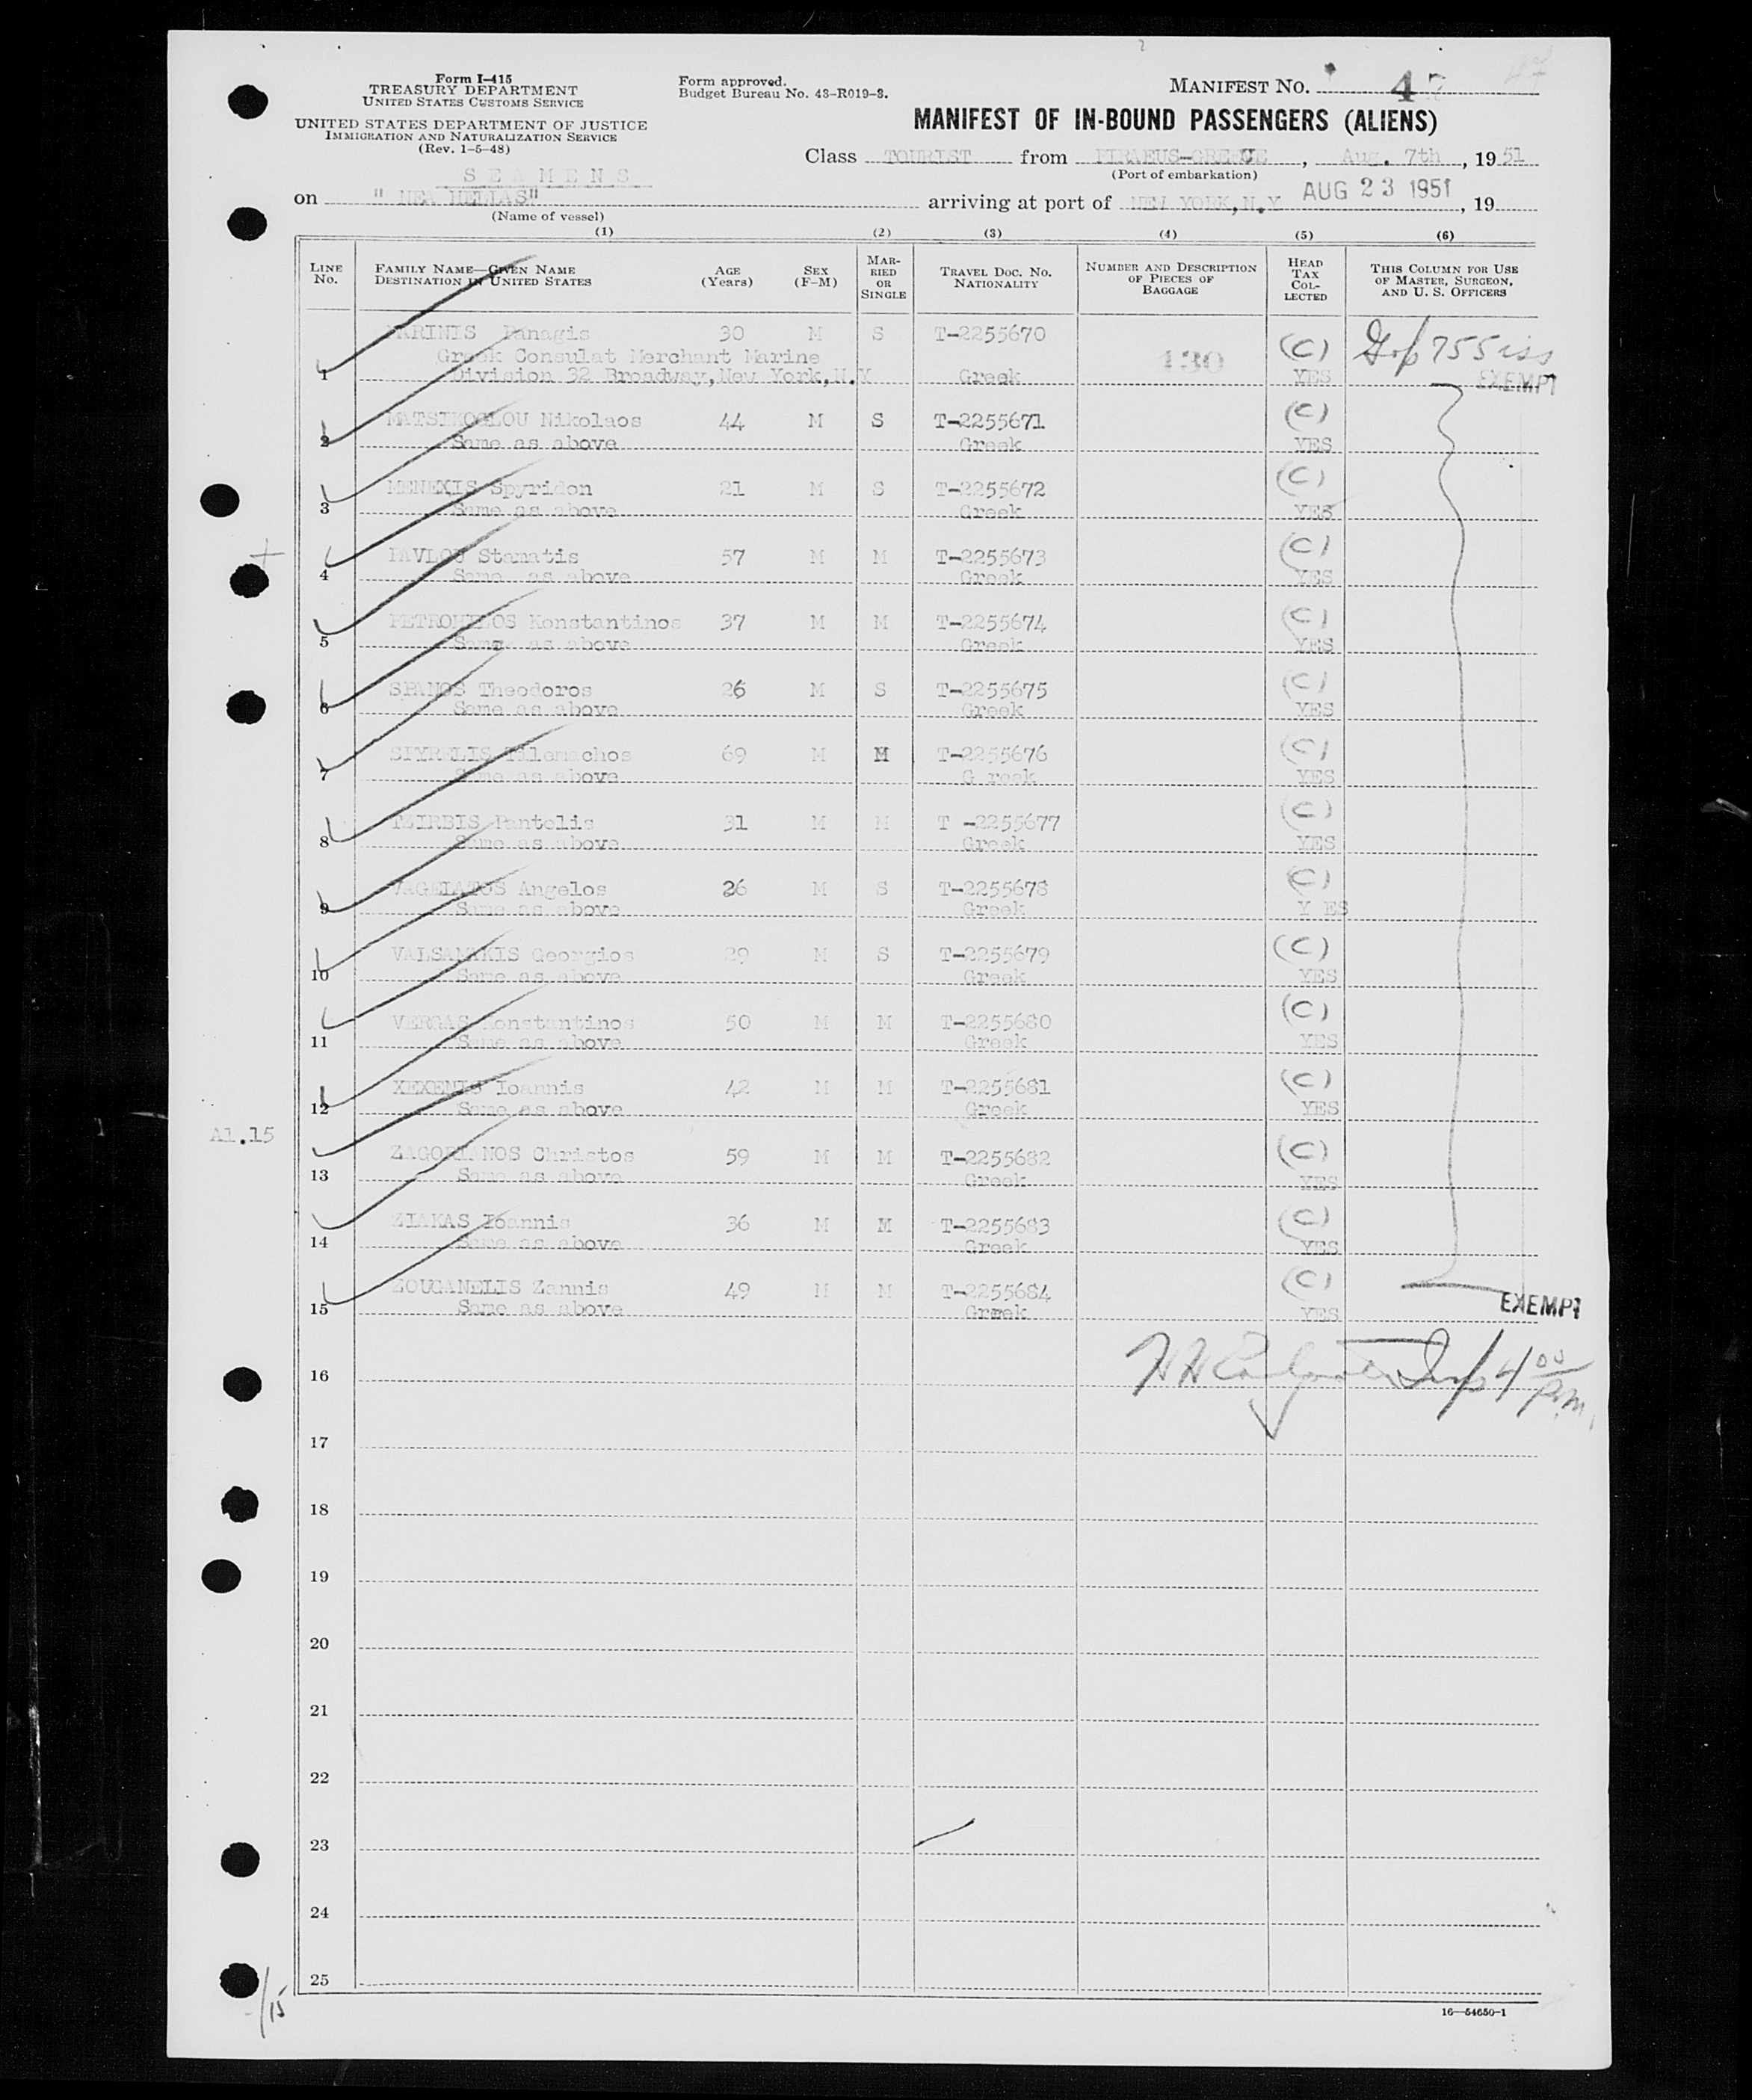 Form I-415
TREASURY DEPARTMENT
UNITED STATES CUSTOMS SERVICE
UNITED STATES DEPARTMENT OF JUSTICE
IMMIGRATION AND NATURALIZATION SERVICE
(Rev. 1-5-48)
Form approved.
Budget Bureau No. 43-R019-3.
MANIFEST NO. 4
MANIFEST OF IN-BOUND PASSENGERS (ALIENS)
Class TOURIST from PIRAEUS-GREECE, Aug. 7th, 1951
(Port of embarkation)
S E A M E N S
on " NEA HELLAS" arriving at port of NEW YORK, N.Y AUG 23 1951, 19
(Name of vessel)
(1) (2) (3) (4) (5) (6)
LINE No. FAMILY NAME—GIVEN NAME DESTINATION IN UNITED STATES AGE (Years) SEX (F-M) MARRIED OR SINGLE TRAVEL DOC. NO. NATIONALITY NUMBER AND DESCRIPTION OF PIECES OF BAGGAGE HEAD TAX COLLECTED THIS COLUMN FOR USE OF MASTER, SURGEON, AND U. S. OFFICERS
MARINIS Panagis 30 M S T-2255670 (C) 755
Greek Consulat Merchant Marine 130
1 Division 32 Broadway, New York, N.Y Greek YES EXEMPT
MATSIKOGLOU Nikolaos 44 M S T-2255671 (C)
2 Same as above Greek YES
MENEXIS Spyridon 21 M S T-2255672 (C)
3 Same as above Greek YES
PAVLOU Stamatis 57 M M T-2255673 (C)
4 Same as above Greek YES
Konstantinos 37 M M T-2255674 (C)
5 Same as above Greek YES
SPANOS Theodoros 26 M S T-2255675 (C)
6 Same as above Greek YES
69 M M T-2255676 (C)
7 Same as above G reek YES
TZIRBIS Pantelis 31 M M T -2255677 (C)
8 Same as above Greek YES
VAGELATOS Angelos 26 M S T-2255678 (C)
9 Same as above Greek Y ES
VALSAMAKIS Georgios 29 M S T-2255679 (C)
10 Same as above Greek YES
VERGAS Konstantinos 50 M M T-2255680 (C)
11 Same as above Greek YES
XEXENIS Ioannis 42 M M T-2255681 (C)
12 Same as above Greek YES
A1.15
ZAGORIANOS Christos 59 M M T-2255682 (C)
13 Same as above Greek YES
ZIAKAS Ioannis 36 M M T-2255683 (C)
14 Same as above Greek YES
ZOUGANELIS Zannis 49 M M T-2255684 (C)
15 Same as above Greek YES EXEMPT
16 4 00 P.M.
17
18
19
20
21
22
23
24
25
/15
16—54650-1